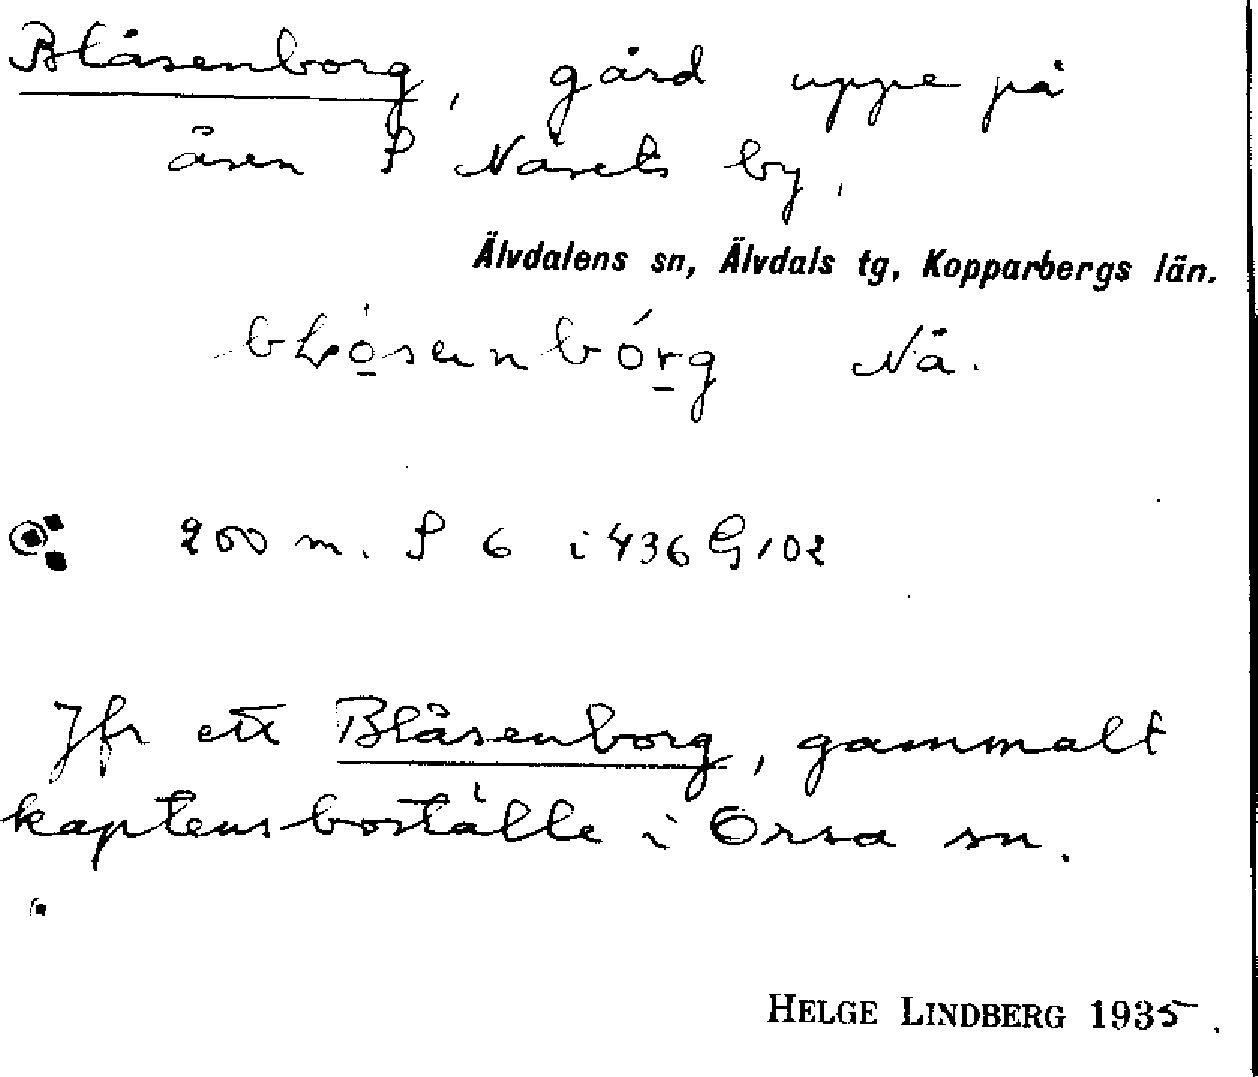 Blåsenborg, gård uppe på
åsen S Näsets by.
Älvdalens sn, Älvdals tg, Kopparbergs län.
Nä.
200 m. S 6 i 436 G 102
Jfr ett Blåsenborg, gammalt
kaptensboställe i Orsa sn.
HELGE LINDBERG 1935.